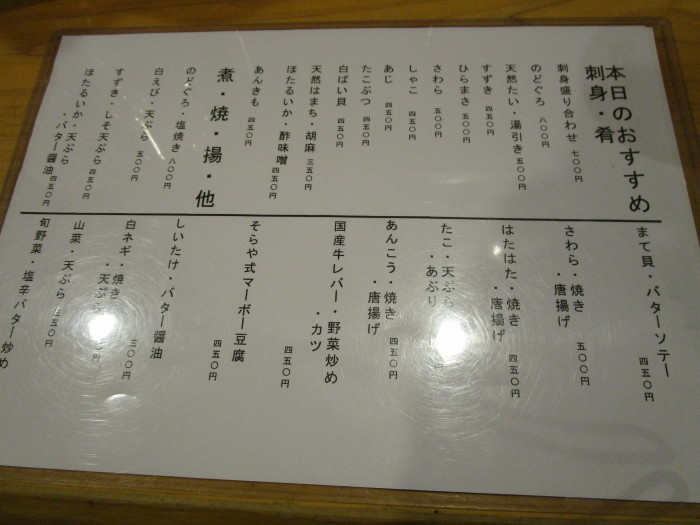 本日のおすすめ
刺身・肴
刺身盛り合わせ 七〇〇円
のどぐろ 八〇〇円
天然たい・湯引き 五〇〇円
すずき 四五〇円
ひらまさ 五〇〇円
さわら 五〇〇円
しゃこ 四五〇円
あじ 四五〇円
たこぶつ 四五〇円
白ばい貝 四五〇円
天然はまち・胡麻 三五〇円
ほたるいか・酢味噌 四五〇円
あんきも 四五〇円
煮・焼・揚・他
のどぐろ・塩焼き 八〇〇円
白えび・天ぷら 五〇〇円
すずき・しそ天ぷら 四五〇円
ほたるいか・天ぷら
・バター醤油 四五〇円
まて貝・バターソテー 四五〇円
さわら・焼き
・唐揚げ 五〇〇円
はたはた・焼き
・唐揚げ 四五〇円
たこ・天ぷら
・あぶり
あんこう・焼き
・唐揚げ 四五〇円
国産牛レバー・野菜炒め
・カツ 四五〇円
そらや式マーボー豆腐 四五〇円
しいたけ・バター醤油
白ネギ・焼き
・天ぷら 三〇〇円
山菜・天ぷら 五〇円
旬野菜・塩辛バター炒め